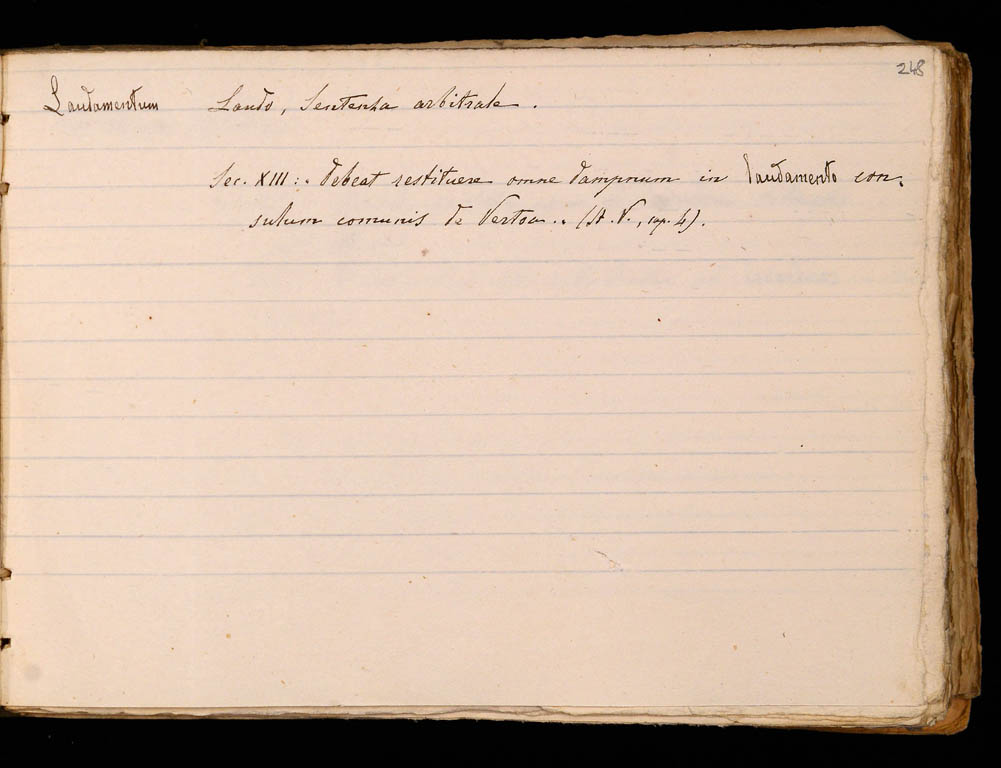 248
Laudamentum Laudo, Sentenza arbitrale.
Sec. XIII: « debeat restituere omne dampnum in laudamento con-
sulum comunis de Vertoa.» (St. V., cap. 4).